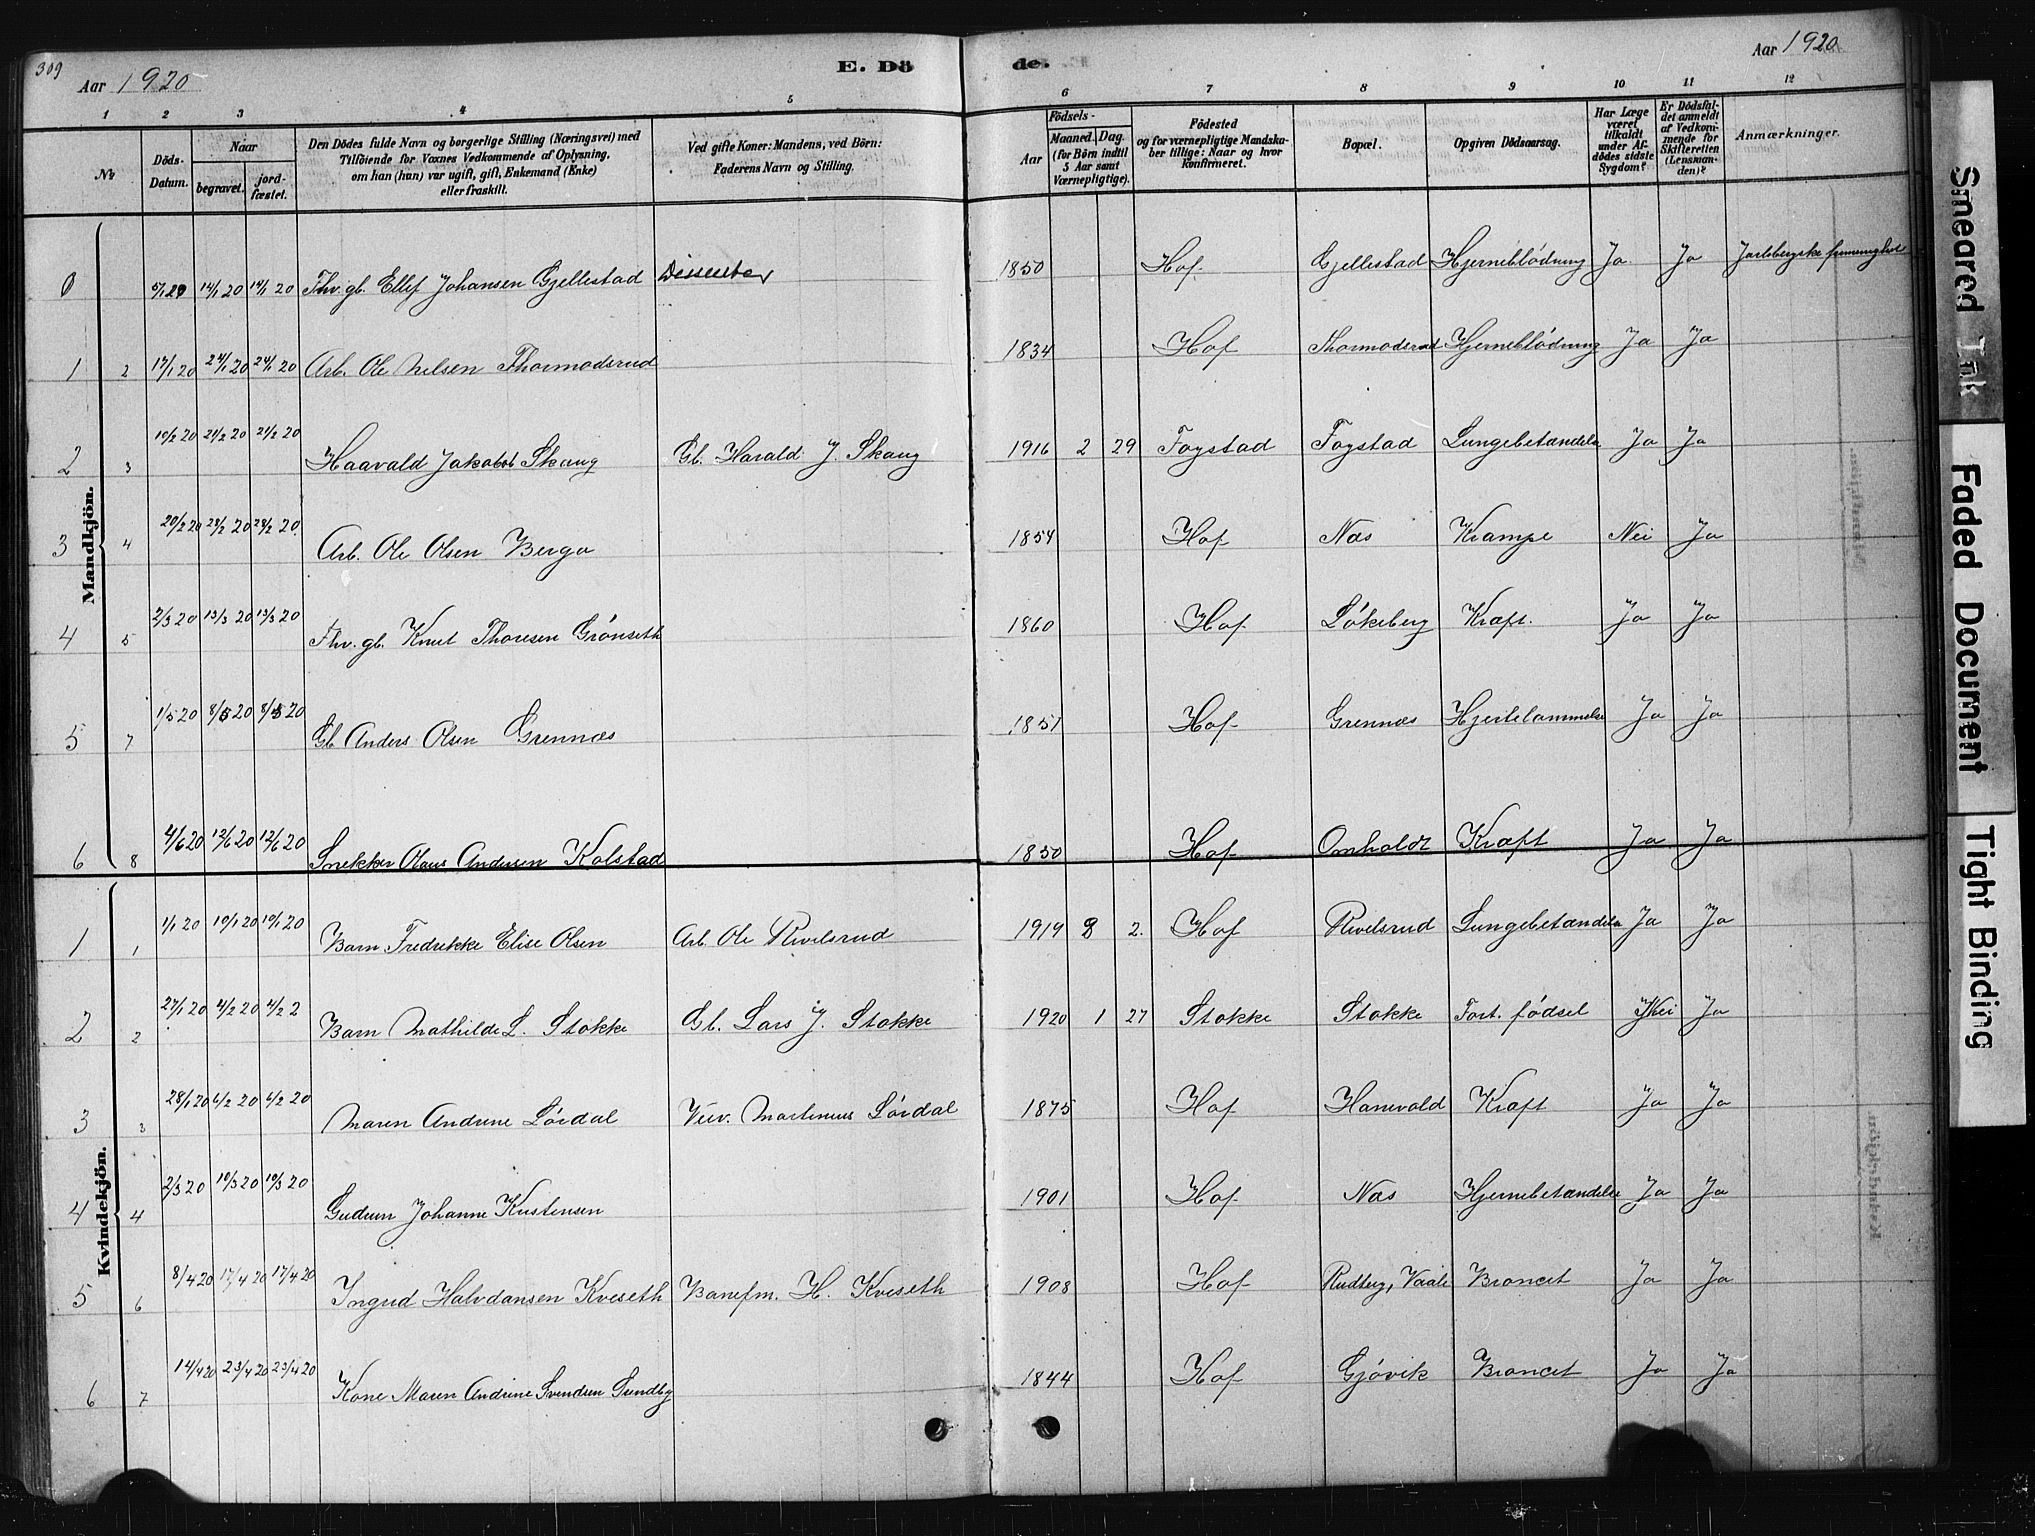 309
Aar 1920
E. Dö
de.
Aar 1920
1 2 3 4 5 6 7 8 9 10 11 12
No
Döds-
Datum.
Naar
begravet.
jord-
fæstet.
Den Dödes fulde Navn og borgerlige Stilling (Næringsvei) med
Tilföiende for Voxnes Vedkommende af Oplysning,
om han (hun) var ugift, gift, Enkemand (Enke)
eller fraskilt.
Ved gifte Koner: Mandens, ved Börn:
Faderens Navn og Stilling.
Födsels-
Aar
Maaned.
Dag.
(for Börn indtil
5 Aar samt
Værnepligtige).
Födested
og for værnepligtige Mandska-
ber tillige: Naar og hvor
konfirmeret.
Bopæl.
Opgiven Dödsaarsag.
Har Læge
været
tilkaldt
under Af-
dödes sidste
Sygdom?
Er Dödsfal-
det anmeldt
af Vedkom-
mende for
Skifteretten
(Lensman-
den)?
Anmærkninger.
Mandkjön.
0 14/1 20 14/1 20 Fhv. gb. Ellef Johansen Gjellestad Dissenter 1850 Hof. Gjellestad Hjerneblödning Ja Ja Jarlsbergske
1 2 17/1 20 24/1 20 24/1 20 Arb. Ole Nilsen Thormodsrud 1834 Hof Thormodsrud Hjerneblödning Ja Ja
2 3 10/2 20 21/2 20 21/2 20 Haavald Jakobst Skaug Gb. Harald J. Skaug 1916 2 29 Fogstad Fogstad Lungebetændelse Ja Ja
3 4 20/2 20 28/2 20 28/2 20. Arb. Ole Olsen Berga 1854 Hof Næs Krampe Nei Ja
4 5 2/3 20 13/3 20 13/3 20 Fhv. gb. Knut Thoresen Grönseth 1860 Hof Lökeberg Kræft. Ja Ja
5 7 1/5 20 8/5 20 8/5 20 Gb Anders Olsen Grennæs 1851 Hof Grennæs Hjertelammelse Ja Ja
6 8 4/6 20 12/6 20 12/6 20 Snekker Olaus Andersen Kolstad 1850 Hof Omholdt Kræft Ja Ja
Kvindekjön.
1 1 1/1 20 10/1 20 10/1 20 Barn Fredrikke Elise Olsen Arb. Ole Rivelsrud 1919 8 2. Hof Rivelsrud Lungebetændelse Ja Ja
2 2 27/1 20 4/2 20 4/2 2 Barn Mathilde L. Stokke Gb. Lars J. Stokke 1920 1 27 Stokke Stokke Fort. födsel Nei Ja
3 3 28/1 20 6/2 20 6/2 20 Maren Andrine Lördal Veiv. Martinius Lördal 1875 Hof Hanevold Kræft Ja Ja
4 4 2/3 20 10/3 20 10/3 20 Gudrun Johanne Kristensen 1901 Hof Næs Hjernebetændelse Ja Ja
5 6 8/4 20 17/4 20 17/4 20 Ingrid Halvdansen Kveseth Banefm. H. Kveseth 1908 Hof Rudberg, Vaale Broncit Ja Ja
6 7 14/4 20 23/4 20 23/4 20 Kone Maren Andrine Svendsen Sundby 1844 Hof Gjövik Broncit Ja Ja
Smeared Ink
Faded Document
Tight Binding